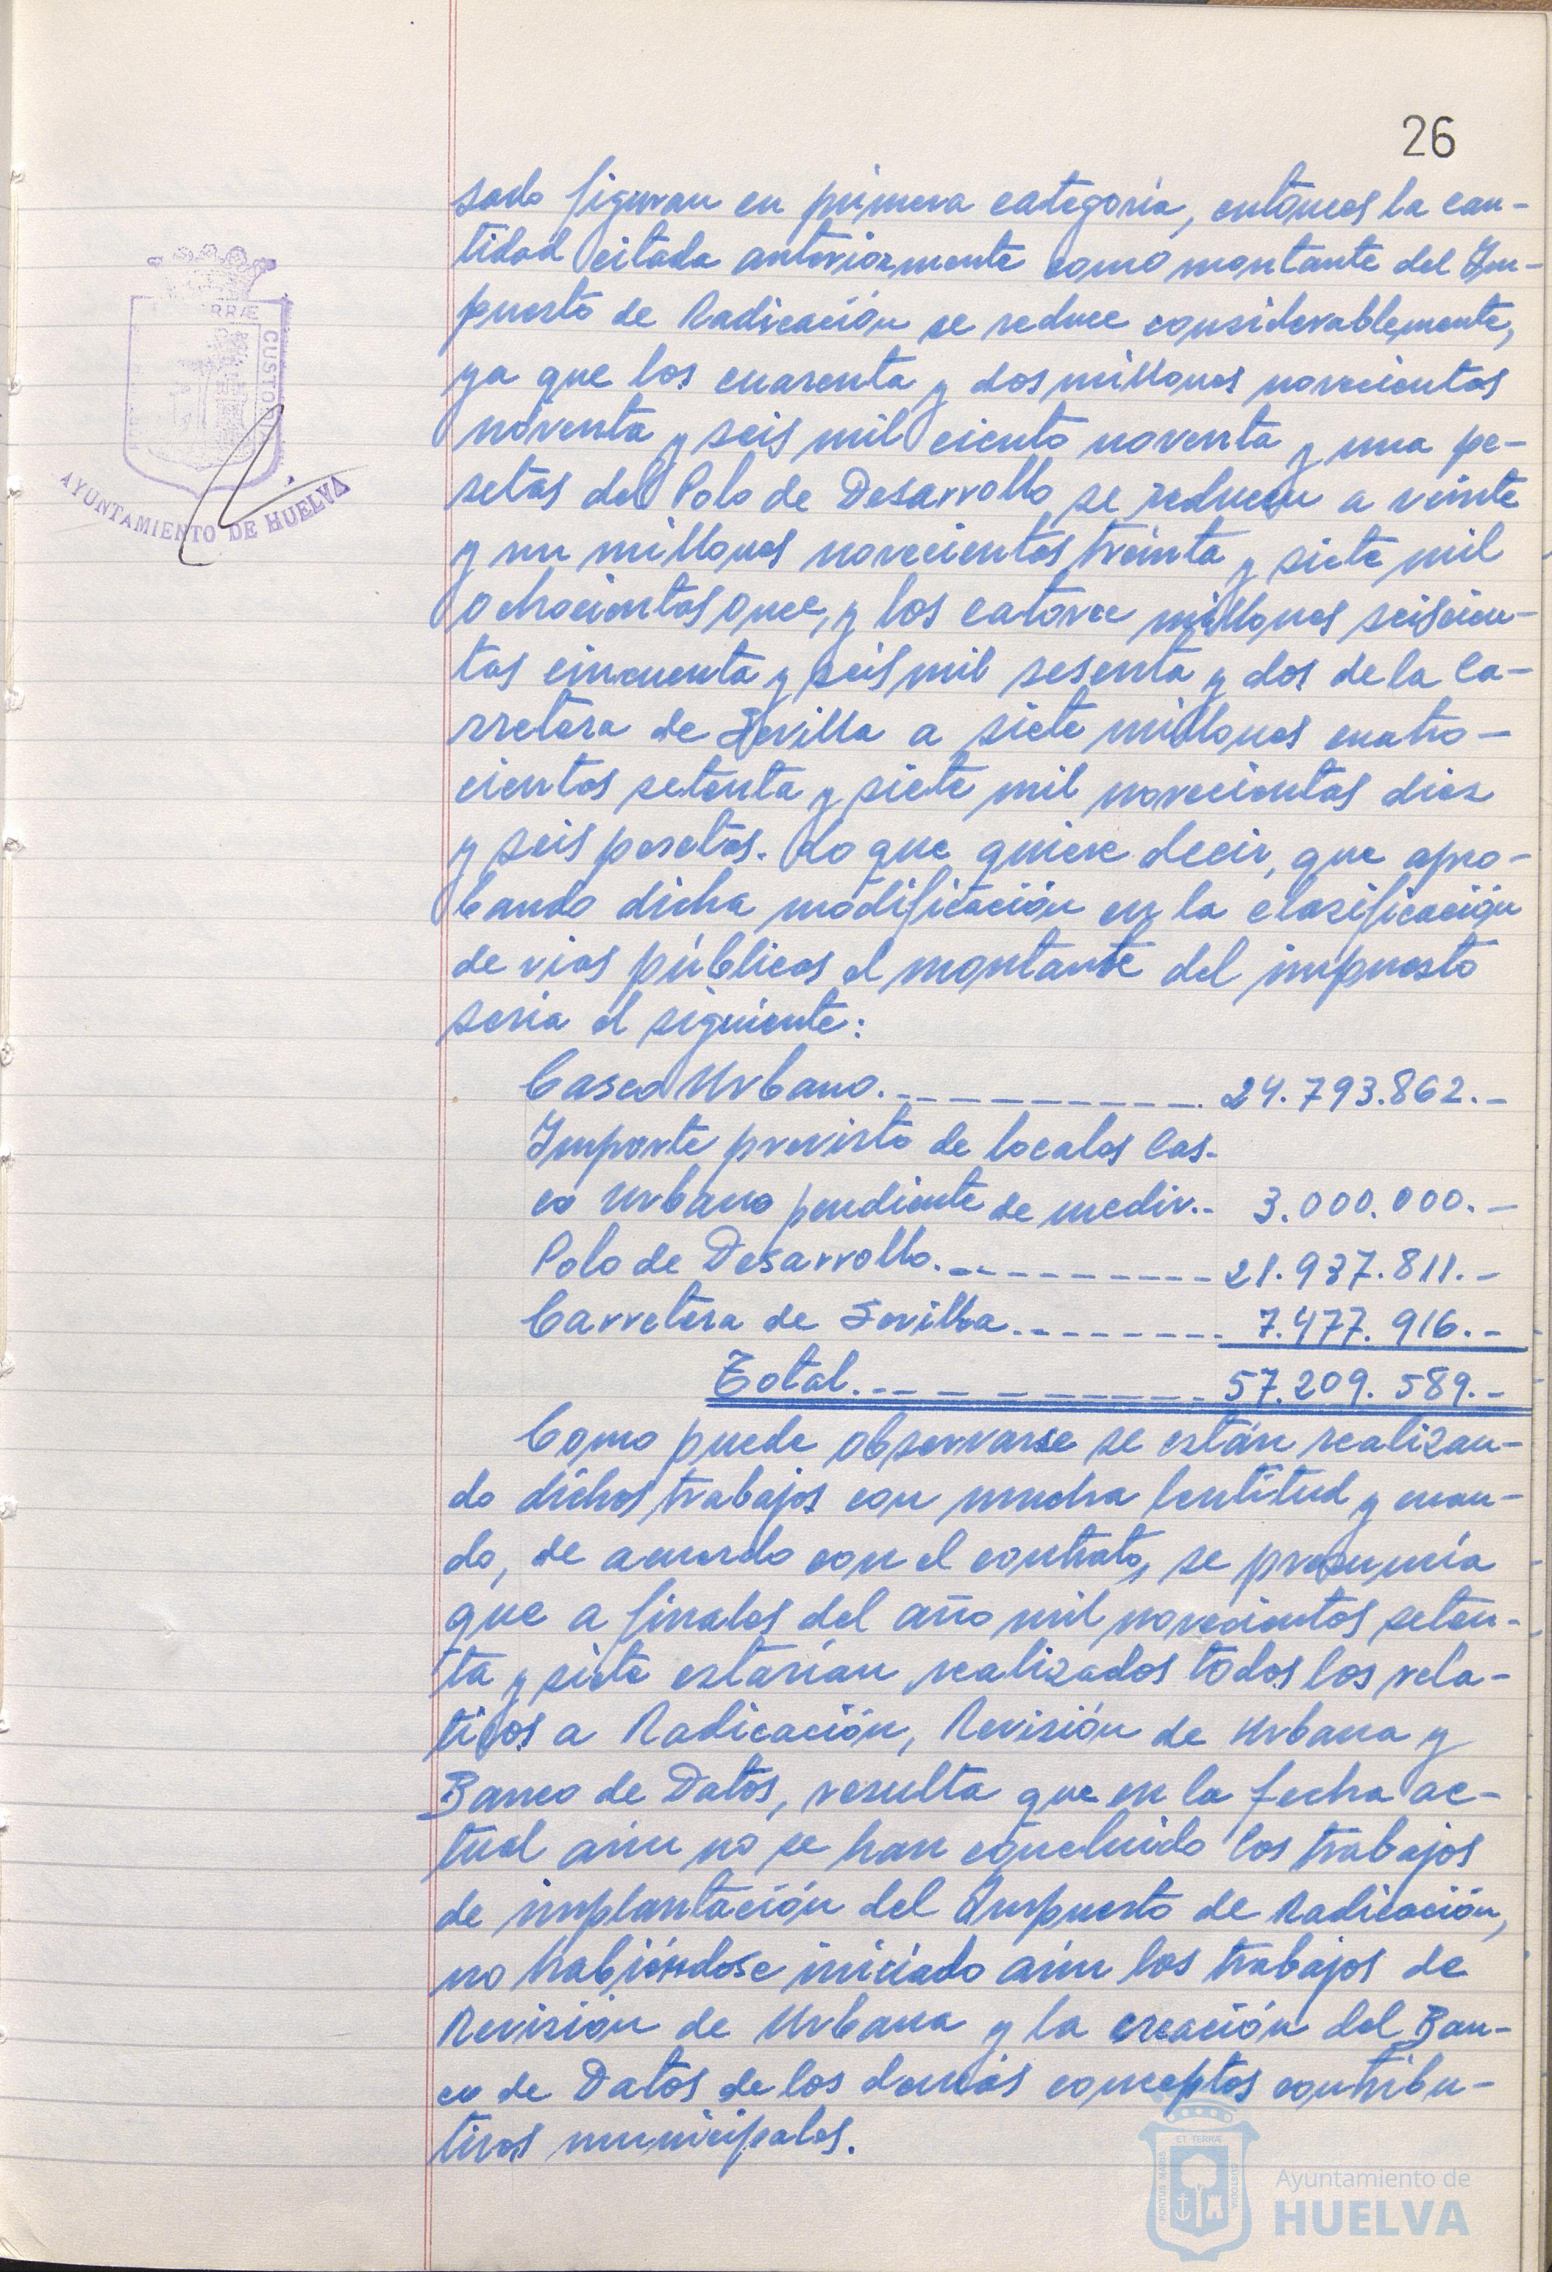 26
sado figuran en primera categoría, entonces la can-
tidad citada anteriormente como montante del Im-
puesto de Radicación se reduce considerablemente,
ya que los cuarenta y dos millones novecientos
noventa y seis mil ciento noventa y una pe-
setas del Polo de Desarrollo se reducen a veinte
y un millones novecientos treinta y siete mil
ochocientos once, y los catorce millones seiscien-
tas cincuenta y seis mil sesenta y dos de la Ca-
rretera de Sevilla a siete millones cuatro-
cientos setenta y siete mil novecientas diez
y seis pesetas. Lo que quiere decir, que apro-
bando dicha modificación en la clasificación
de vias públicas el montante del impuesto
seria el siguiente:
Casco Urbano. 24.793.862.-
Importe previsto de locales Cas-
co Urbano pendiente de medir.- 3.000.000.-
Polo de Desarrollo. 21.937.811.-
Carretera de Sevilla. 7.477.916.-
Total. 57.209.589.-
Como puede observarse se están realizan-
do dichos trabajos con mucha lentitud y cuan-
do, de acuerdo con el contrato, se presumía
que a finales del año mil novecientos seten-
ta y siete estarían realizados todos los rela-
tivos a Radicación, Revisión de Urbana y
Banco de Datos, resulta que en la fecha ac-
tual aún no se han concluido los trabajos
de implantación del Impuesto de Radicación,
no habiéndose iniciado aún los trabajos de
Revisión de Urbana y la creación del Ban-
co de Datos de los demás conceptos contribu-
tivos municipales.
RRÆ
CUSTODI
AYUNTAMIENTO DE HUELVA
PORTUS MARIS
ET TERRÆ
CUSTODIA
Ayuntamiento de
HUELVA